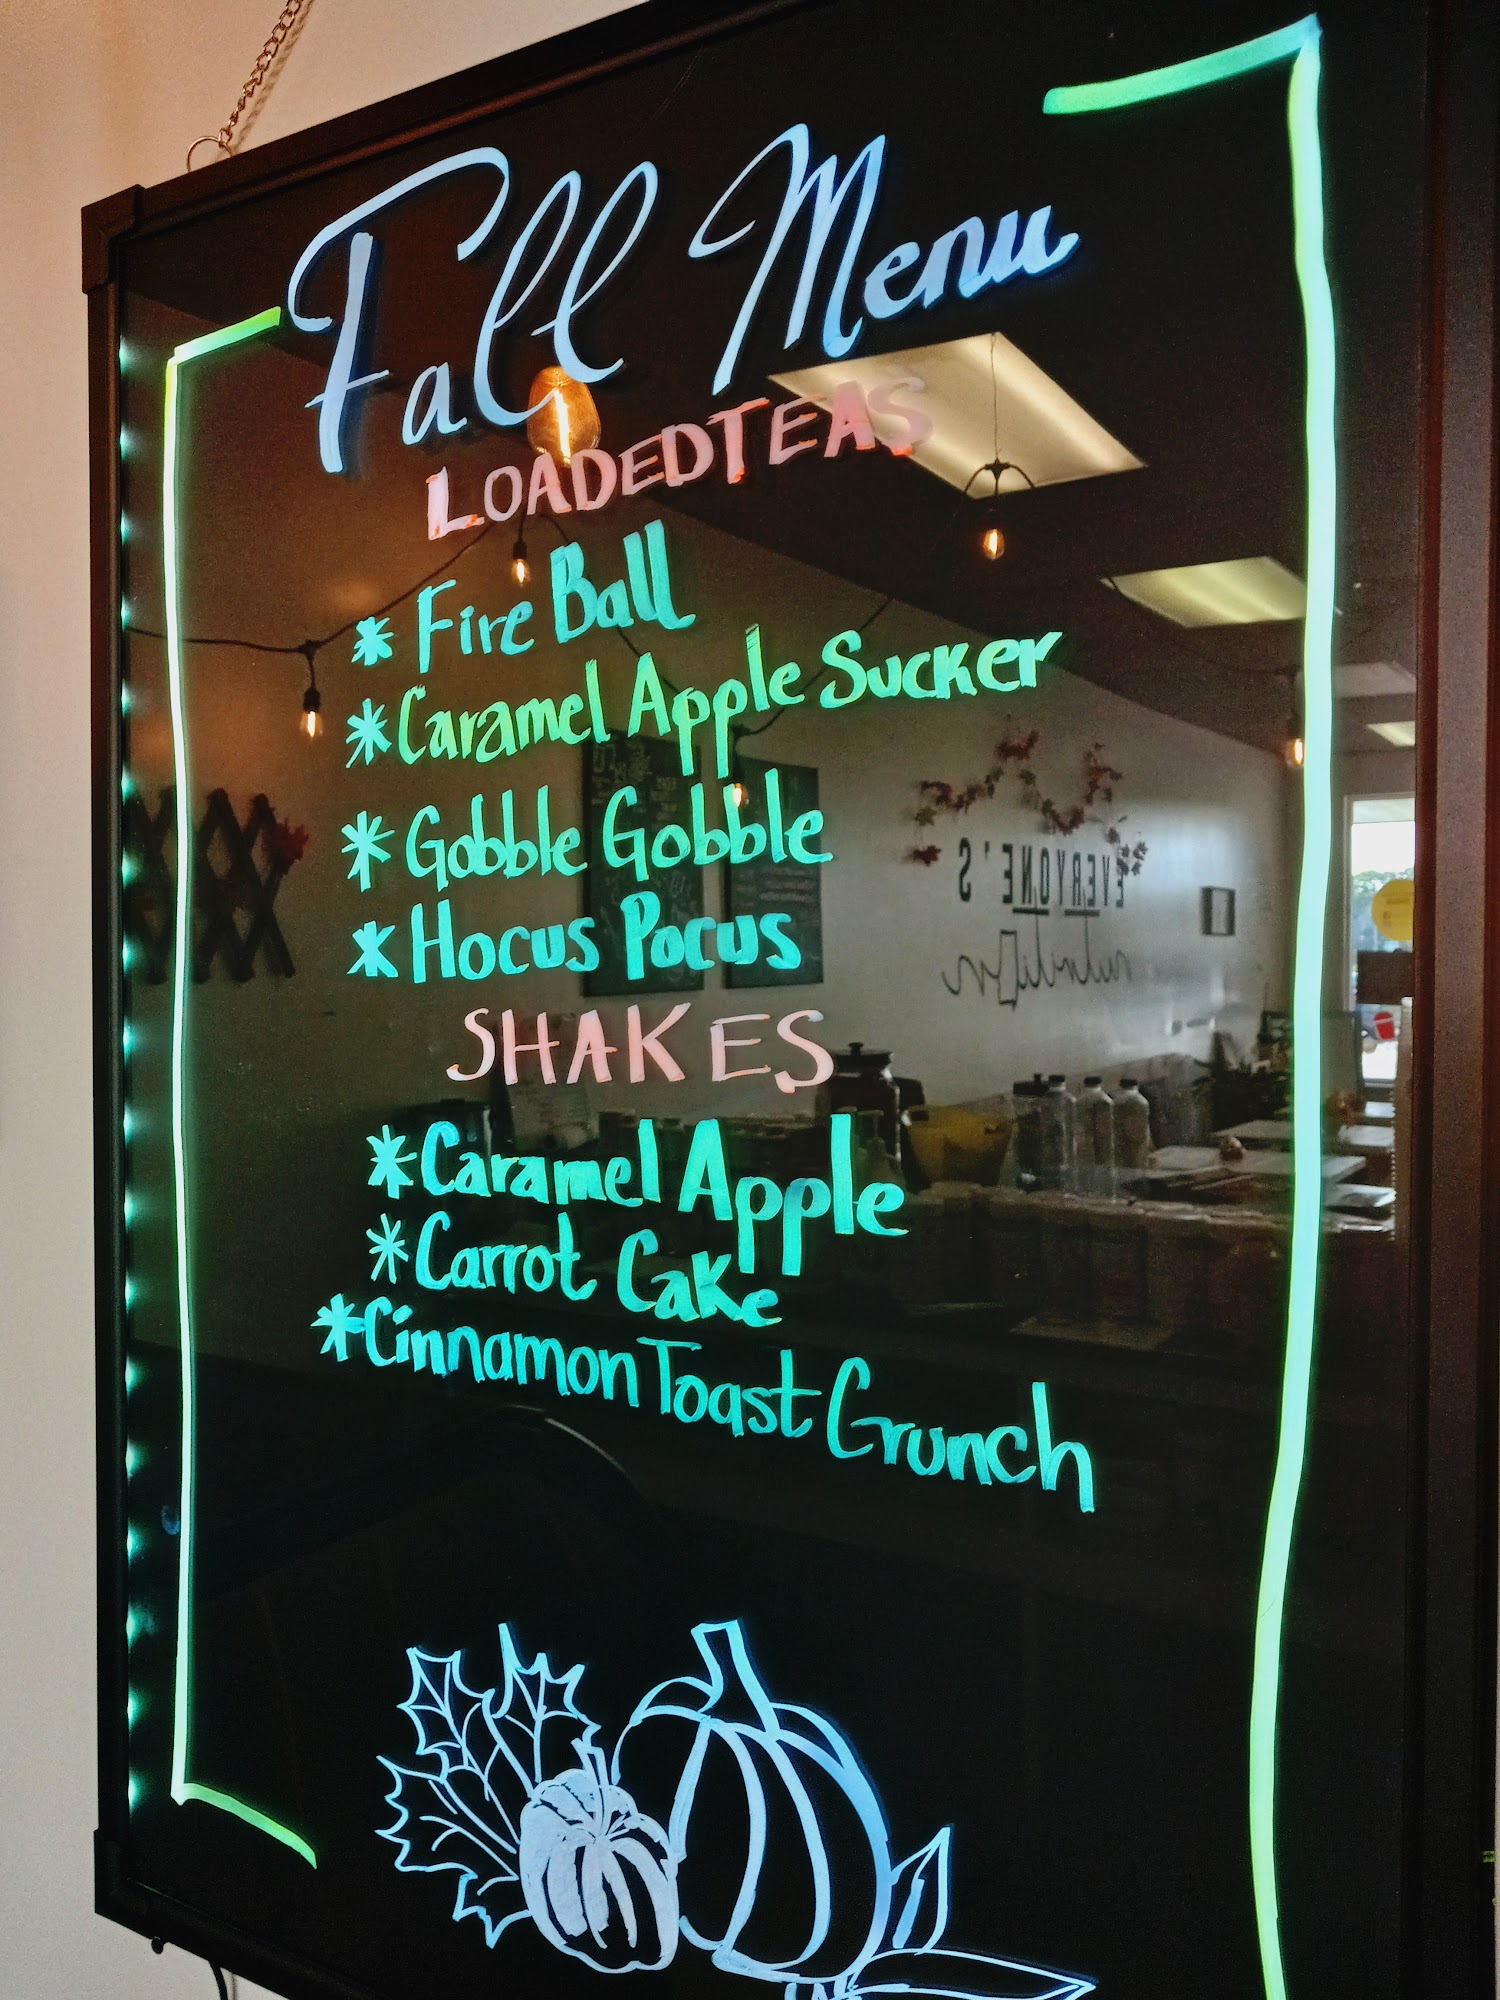 Fall Menu
LOADED TEAS
* Fire Ball
* Caramel Apple Sucker
* Gobble Gobble
* Hocus Pocus
SHAKES
* Caramel Apple
* Carrot Cake
* Cinnamon Toast Crunch
EVERYONE'S
nutrition